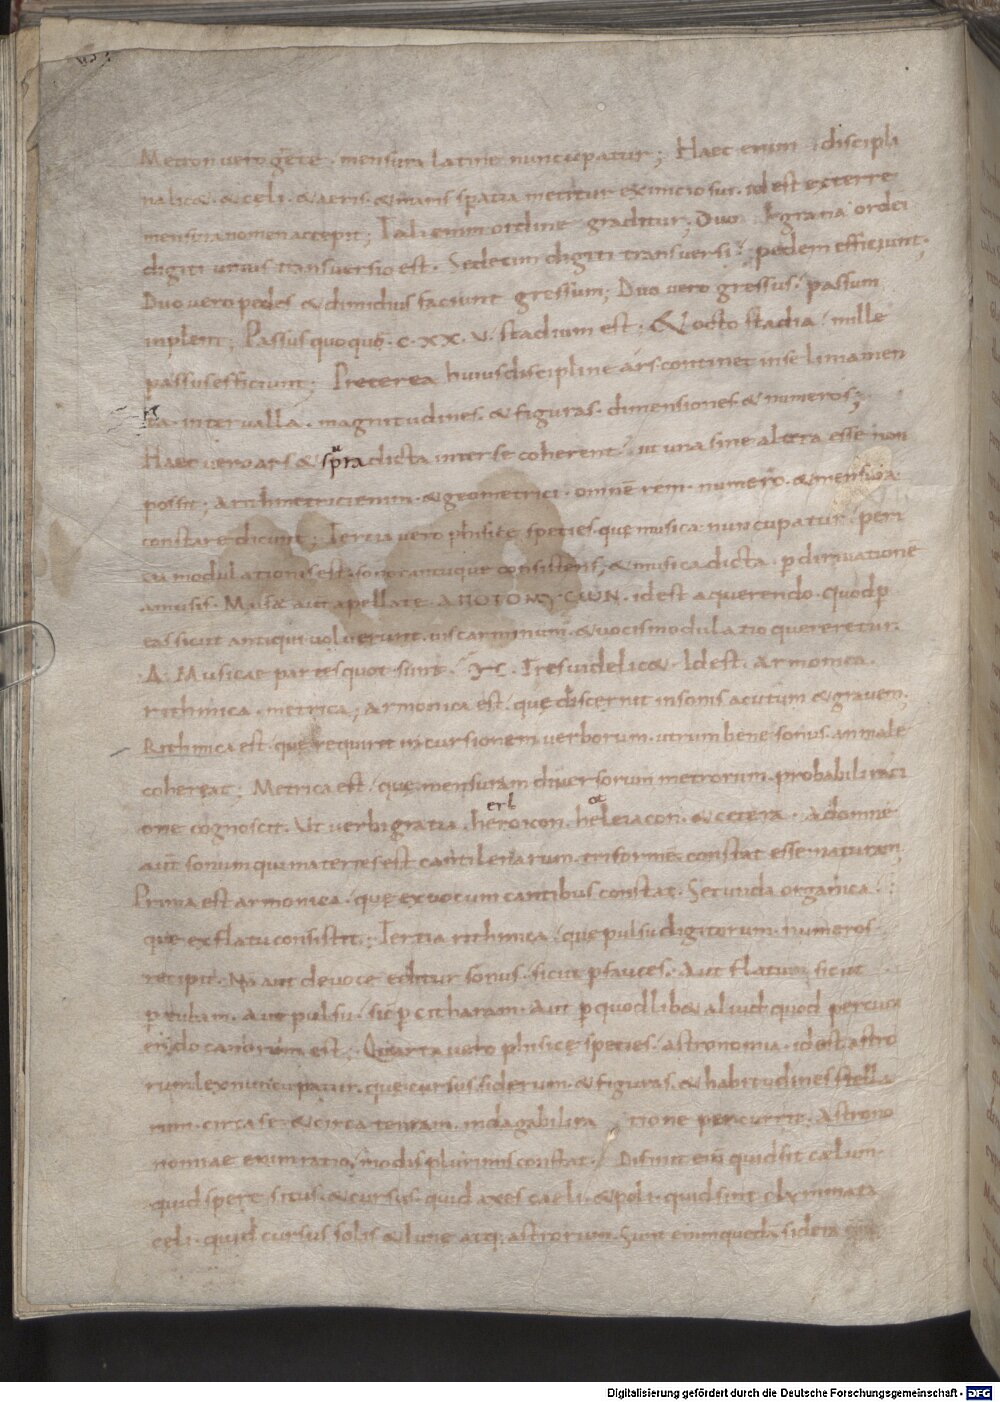 Metron vero grece · mensura latine nuncupatur; Haec enim · discipli
na licę · & celi · & aeris · & maris spatia metitur ex inicio sui · id est ex terre
mensura nomen accepit; Tali enim ordine graditur; Duo grana ordei
digiti unius transversio est · Sedecim digiti transversi · pedem efficiunt;
Duo vero pedes & dimidius faciunt gressum; Duo vero gressus · passum
inplent; Passus quoque · c·xx·v· stadium est; & octo stadia · mille
passus efficiunt; Preterea huius discipline ars continet in sé linamen
ta · intervalla · magnitudines · & figuras · dimensiones & numeros;
Haec vero ars & supra dicta inter se coherent · ut una sine altera esse non
possit; Arithmetrici enim · & geometrici · omnē rem · numero · & mensura
constare dicunt; Tercia vero phisicę species quę musica nuncupatur · peri
cia modulationis est sono cantuque consistens; & musica dicta · p dirivationē
amusis · Musę aūt apellate · ΑΠΟΤΟΜΥ·CωN · id est a querendo · quod p
eas sicut antiqui voluerunt · vis carminum · & vocis modulatio quereretur ·
Δ · Musicae partes quot sunt · Tres videlicet · Id est · armonica ·
rithmica · metrica; armonica est · quę discernit in sonis acutum & gravem ·
Rithmica est · quę requirit incursionem verborum · utrum bene sonus · an male
cohereat; Metrica est · quę mensuram diversorum metrorum · probabili raci
one cognoscit · Ut verbi gratia · heroicon · heleiacon · & cetera · Ad omne
aūt sonum qui materies est cantilenarum · triformē constat esse naturam;
Prima est armonica · quę ex vocum cantibus constat · Secunda organica ·
que ex flatu consistit; Tertia rithmica · que pulsu digitorum · numeros
recipit · Nā aut de voce editur sonus · sicut p fauces · Aut flatu · sicut
p tubam · Aut pulsu · sic p citharam · Aut p quodlib& aliud quod percuci
endo canorum est; Quarta vero phisicę species · astronomia · id est astro
rum lex nuncupatur · que cursus siderum · & figuras · & habitudines stella
rum · circa se · & circa terram · indagabili ra tione percurrit · Astrono
nomiae enim ratio · modis plurimis constat · Definit enī quid sit caelum ·
quid spere situs · & cursus · quid axes caeli · & poli · quid sint climmata
cęli · quid cursus solis & lune atq; astrorum · Sunt enim quedā sidera
Digitalisierung gefördert durch die Deutsche Forschungsgemeinschaft - DFG